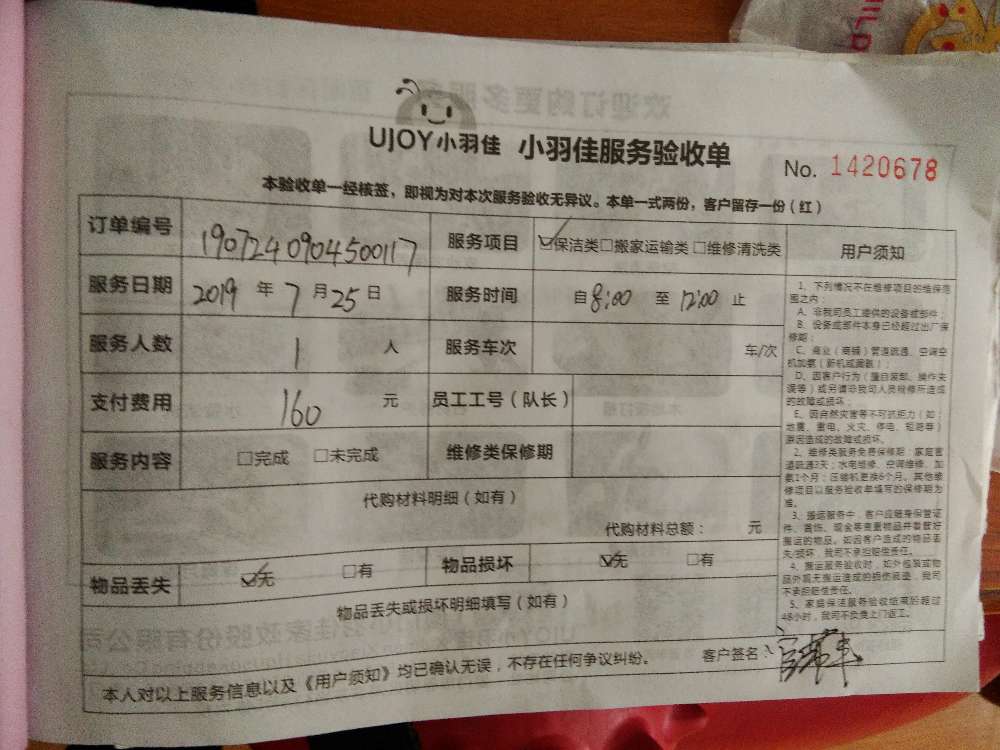 UJOY小羽佳 小羽佳服务验收单
No. 1420678
本验收单一经核签，即视为对本次服务验收无异议。本单一式两份，客户留存一份（红）
订单编号 190724090450​0117 服务项目 ☑保洁类□搬家运输类□维修清洗类 用户须知
服务日期 2019 年 7 月 25 日 服务时间 自 8:00 至 12:00 止
服务人数 1 人 服务车次 车/次
支付费用 160 元 员工工号（队长）
服务内容 □完成 □未完成 维修类保修期
代购材料明细（如有）
代购材料总额： 元
物品丢失 ☑无 □有 物品损坏 ☑无 □有
物品丢失或损坏明细填写（如有）
本人对以上服务信息以及《用户须知》均已确认无误，不存在任何争议纠纷。 客户签名：
1、下列情况不在维修项目的维保范
围之内：
A、非我司员工提供的设备或部件；
B、设备或部件本身已经超过出厂保
修期；
C、商业（商铺）管道疏通、空调空
机加氨（新机或漏氨）；
D、因客户行为（擅自装卸、操作失
误等）或另请非我司人员检修所造成
的故障或损坏；
E、因自然灾害等不可抗拒力（如：
地震、雷电、火灾、停电、短路等）
原因造成的故障或损坏。
2、维修类服务免费保修期：家庭管
道疏通3天；水电维修、空调维修、加
氨1个月；压缩机更换6个月。其他维
修项目以服务验收单填写的保修期为
准。
3、搬运服务中，客户应随身保管证
件、首饰、现金等贵重物品并看管好
搬运的物品。如因客户造成的物品丢
失/损坏，我司不承担赔偿责任。
4、搬运服务验收时，如外包装或物
品外观无搬运造成的损伤痕迹，我司
不承担赔偿责任。
5、家庭保洁服务验收结束后超过
48小时，我司不负责上门返工。